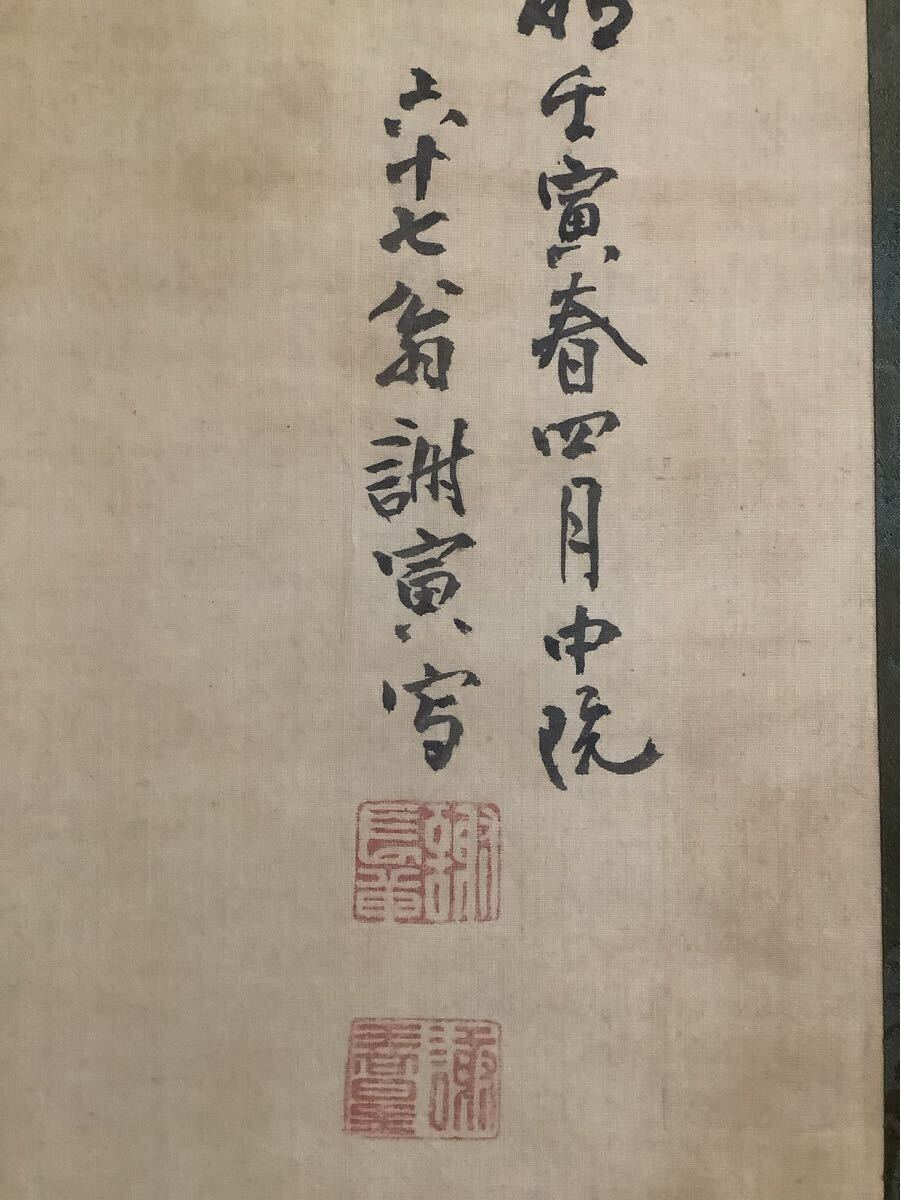 明壬寅春四月中院
六十七翁謝寅写
謝長庚
謝春星